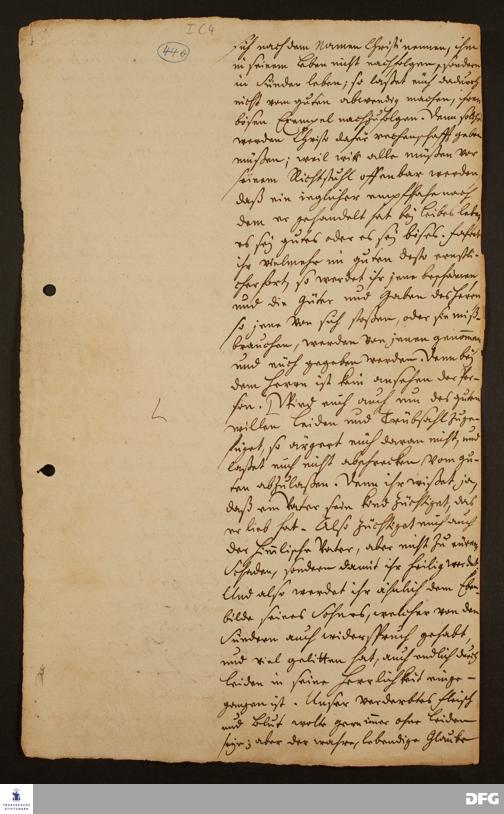 I C 4
446
sich nach dem Namen Christi nennen, ihm
in seinem Leben nicht nachfolgen, sondern
in Sünden leben; so laßet euch dadurch
nicht vom guten abwendig machen, ihren
bösen Exempel nachzufolgen. Denn solche
werden Christo dafür rechenschafft geben
müßen; weil wir alle müßen vor
seinem Richtstuhl offenbar werden
daß ein ieglicher empfahe nach
dem er gehandelt hat bey Leibes Leben
es sey gutes oder es sey böses. fahret
ihr vielmehr im guten desto ernstli-
cher fort, so werdet ihr jene beschämen
und die Güter und Gaben des Herrn
so jene von sich stoßen, oder sie miß-
brauchen, werden von jenen genommen
und euch gegeben werden. Denn bey
dem Herrn ist kein ansehen der Per-
son. Wird euch auch nun des guten
willen Leiden und Trübsahl zuge-
füget, so ärgert euch daran nicht, und
laßet euch nicht abschrecken vom gu-
ten abzulaßen. Denn ihr wißet, ja,
daß ein Vater sein Kind züchtiget, das
er lieb hat. Also züchtiget euch auch
der himlische Vater, aber nicht zu euren
Schaden, sondern damit ihr heilig werdet.
Und also werdet ihr ähnlich dem Eben-
bilde seines Sohnes, welcher von den
Sündern auch widerspruch gehabt,
und viel gelitten hat, auch endlich durch
Leiden in seine Herrlichkeit einge-
gangen ist. Unser verderbtes Fleisch
und Blut wolte gern immer ohne Leiden
seyn; aber der wahre, lebendige Glaube
FRANCKESCHE
STIFTUNGEN
DFG